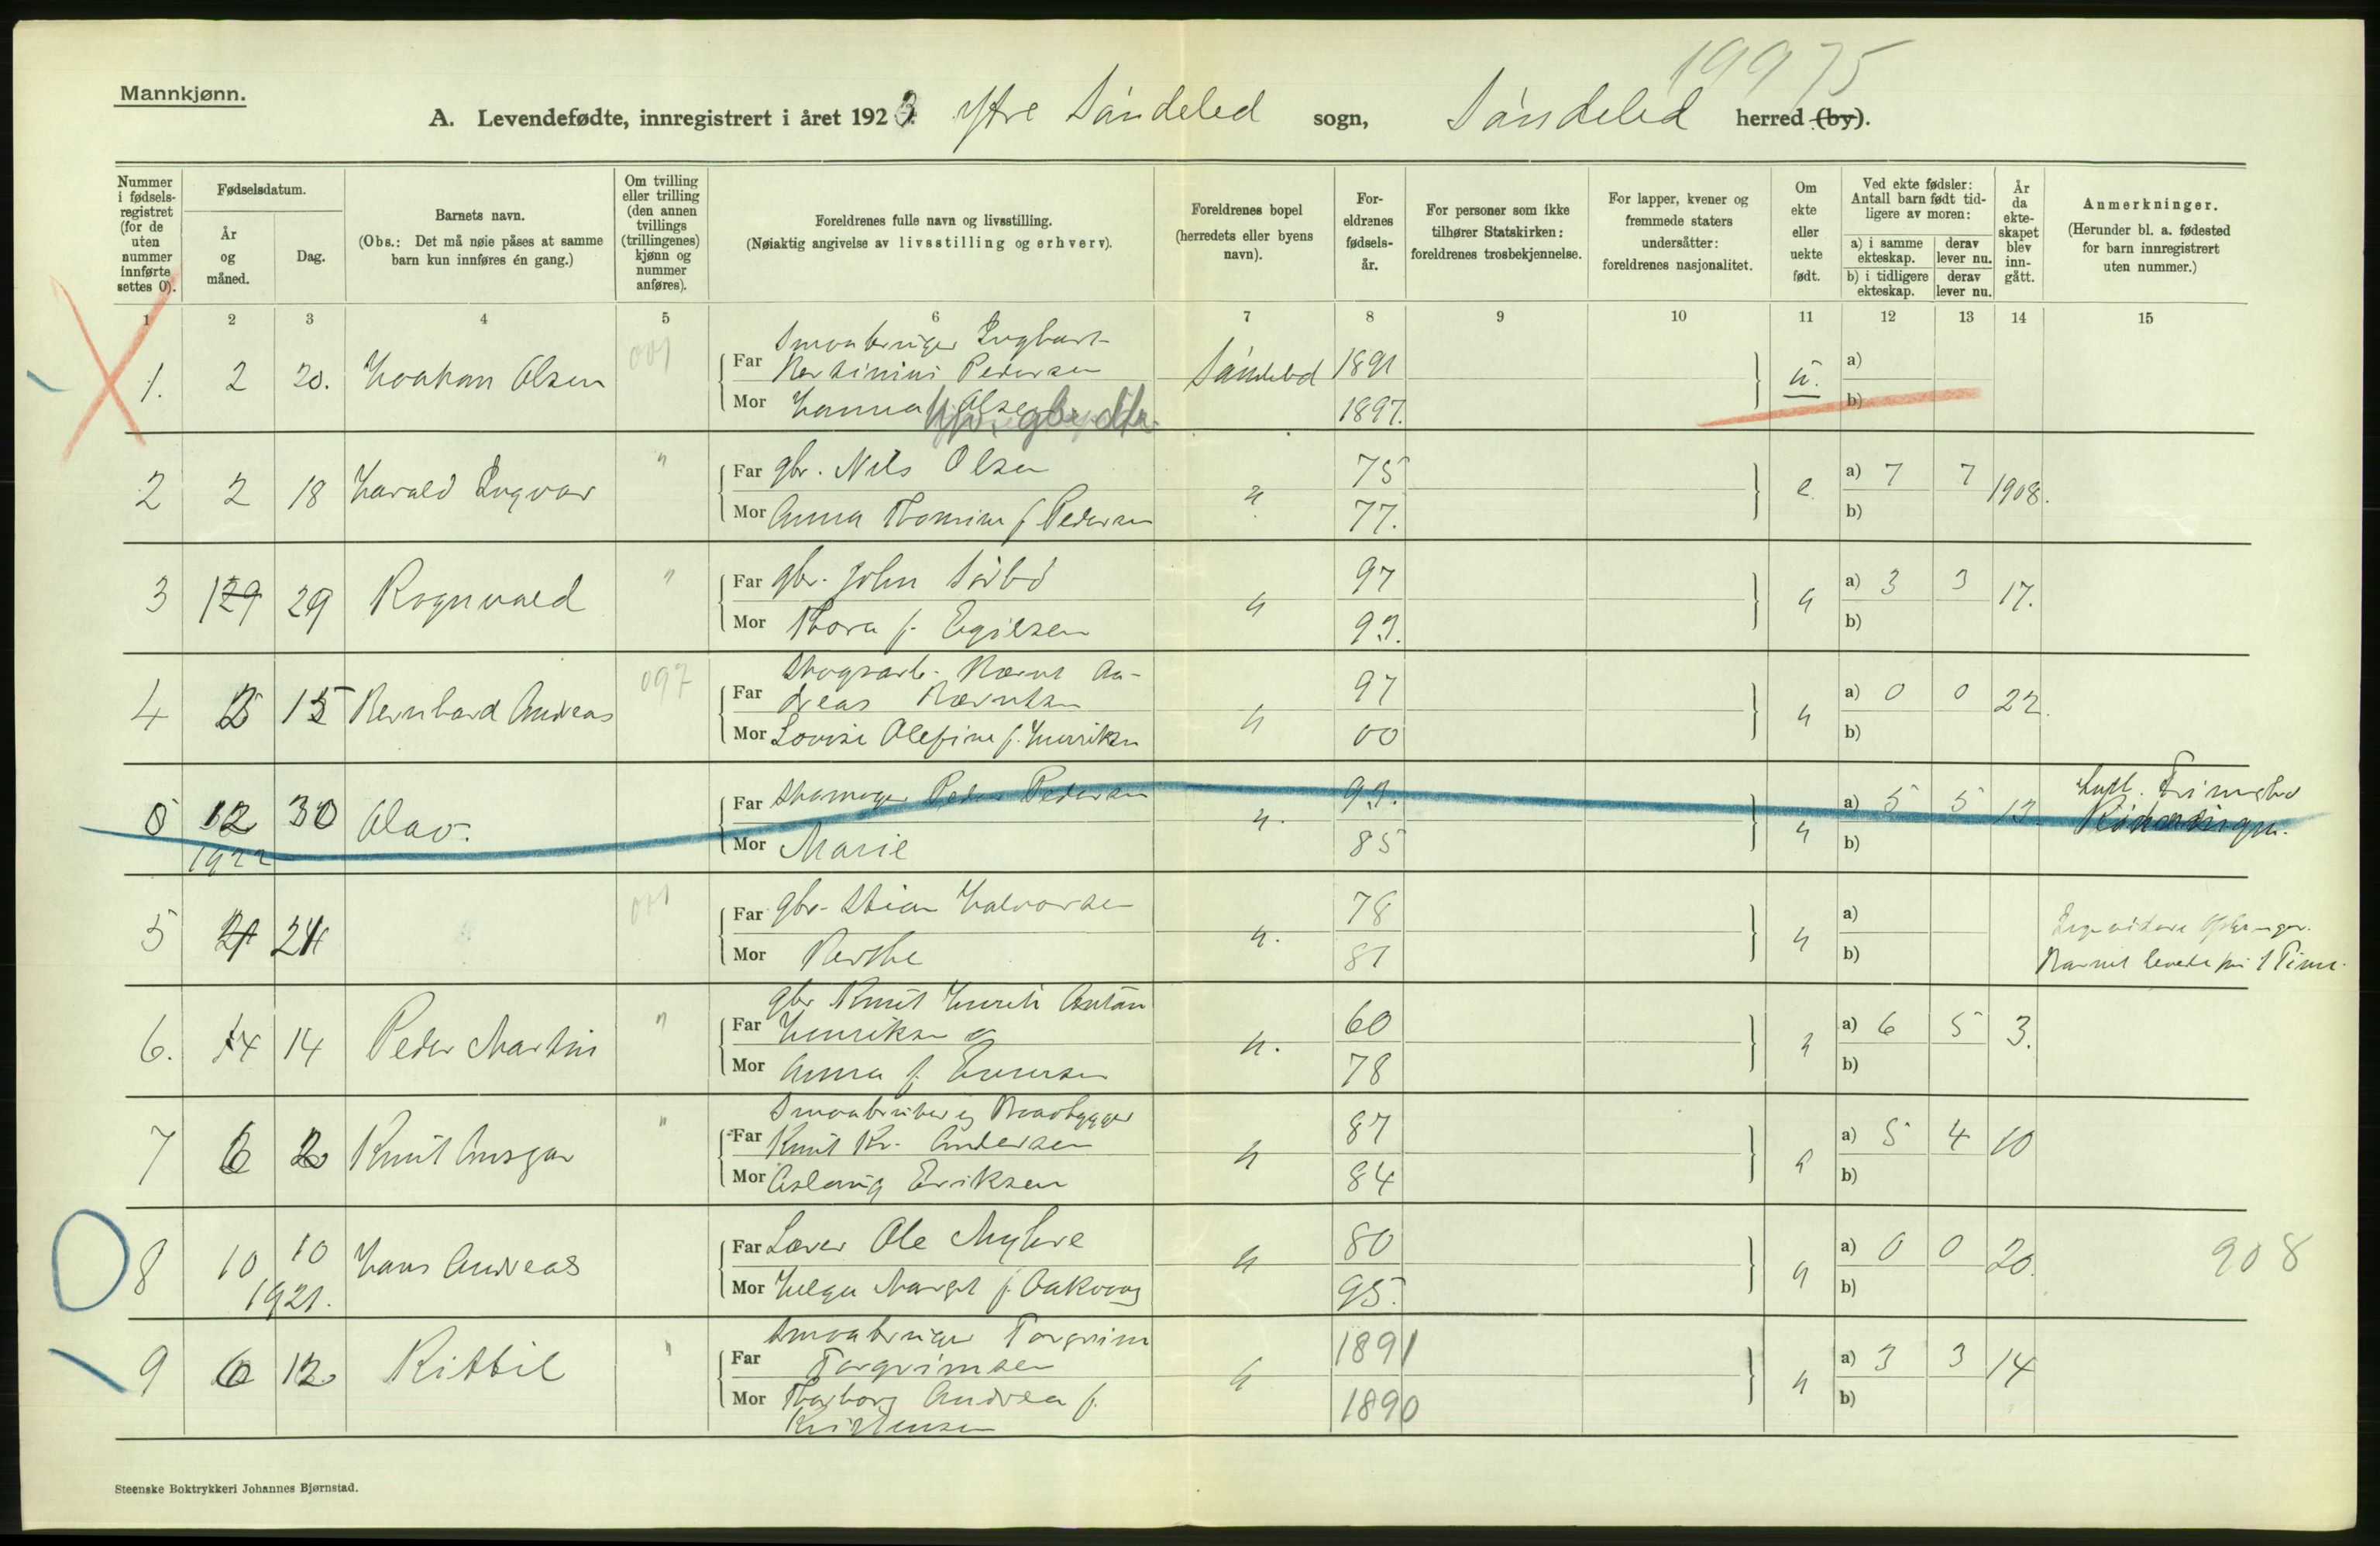 19975
Mannkjønn.
A. Levendefødte, innregistrert i året 1923. Ytre Söndeled sogn, Söndeled herred (by).
Nummer i fødselsregistret (for de uten nummer innførte settes 0).
Fødselsdatum.
År og måned.
Dag.
Barnets navn.
(Obs.: Det må nøie påses at samme barn kun innføres én gang.)
Om tvilling eller trilling (den annen tvillings (trillingenes) kjønn og nummer anføres).
Foreldrenes fulle navn og livsstilling.
(Nøiaktig angivelse av livsstilling og erhverv).
Foreldrenes bopel (herredets eller byens navn).
Foreldrenes fødselsår.
For personer som ikke tilhører Statskirken: foreldrenes trosbekjennelse.
For lapper, kvener og fremmede staters undersåtter: foreldrenes nasjonalitet.
Om ekte eller uekte født.
Ved ekte fødsler: Antall barn født tidligere av moren:
a) i samme ekteskap.
derav lever nu.
b) i tidligere ekteskap.
derav lever nu.
År da ekteskapet blev inngått.
Anmerkninger.
(Herunder bl. a. fødested for barn innregistrert uten nummer.)
1 2 3 4 5 6 7 8 9 10 11 12 13 14 15
1. 2 20. Haakon Olsen 001 Far Smaabruger Ingbart Bertinius Pedersen Söndeled 1891 u. a)
Mor Hanna Olsen gbr. dtr. 1897. b)
2 2 18 Harald Ingvar " Far gbr. Nils Olsen " 75 e. a) 7 7 1908.
Mor Anna Thomine f. Pedersen 77. b)
3 1 29 Rognvald " Far gbr. John Sörbö " 97 " a) 3 3 17.
Mor Thora f. Egilsen 93. b)
4 15 Bernhard Andreas 097 Far Skogsarb. Bernt Andreas Berntsen " 97 " a) 0 0 22.
Mor Lovise Olefine f. Henriksen 00 b)
0 12 30 Olav. Far Peder Pedersen " 93. " a) 5 5 13.
1922 Mor Marie 85 b)
5 24 001 Far gbr. Stian Halvorsen " 78 " a) Ingen videre Oplysninger.
Mor Berthe 81 b) Barnet levede kun 1 Time.
6. 4 14 Peder Martin " Far gbr Knut Henrik Anton Henriksen og " 60 " a) 6 5 3.
Mor Anna f. Evensen 78 b)
7 6 2 Knut Ansgar " Far Smaabruker og Baadbygger Knut Kr. Andersen " 87 " a) 5 4 10
Mor Aslaug Eriksen 84 b)
8 10 10 Hans Andreas Far Lærer Ole Myhre " 80 " a) 0 0 20. 908
1921. Mor Helga Margit f. Aakvaag 95. b)
9 6 12 Kittil " Far Smaabruger Torgrim Torgrimsen " 1891 " a) 3 3 14
Mor Thorborg Andrea f. Kristensen 1890 b)
Steenske Boktrykkeri Johannes Bjørnstad.